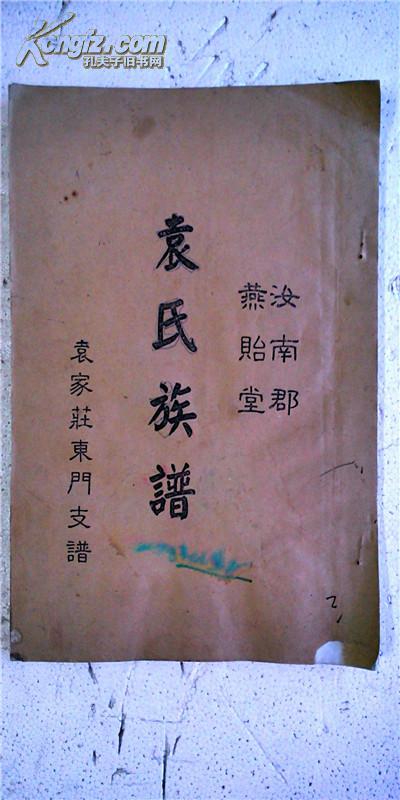 Kongfz.com
孔夫子旧书网
汝南郡
燕貽堂
袁氏族譜
袁家莊東門支譜